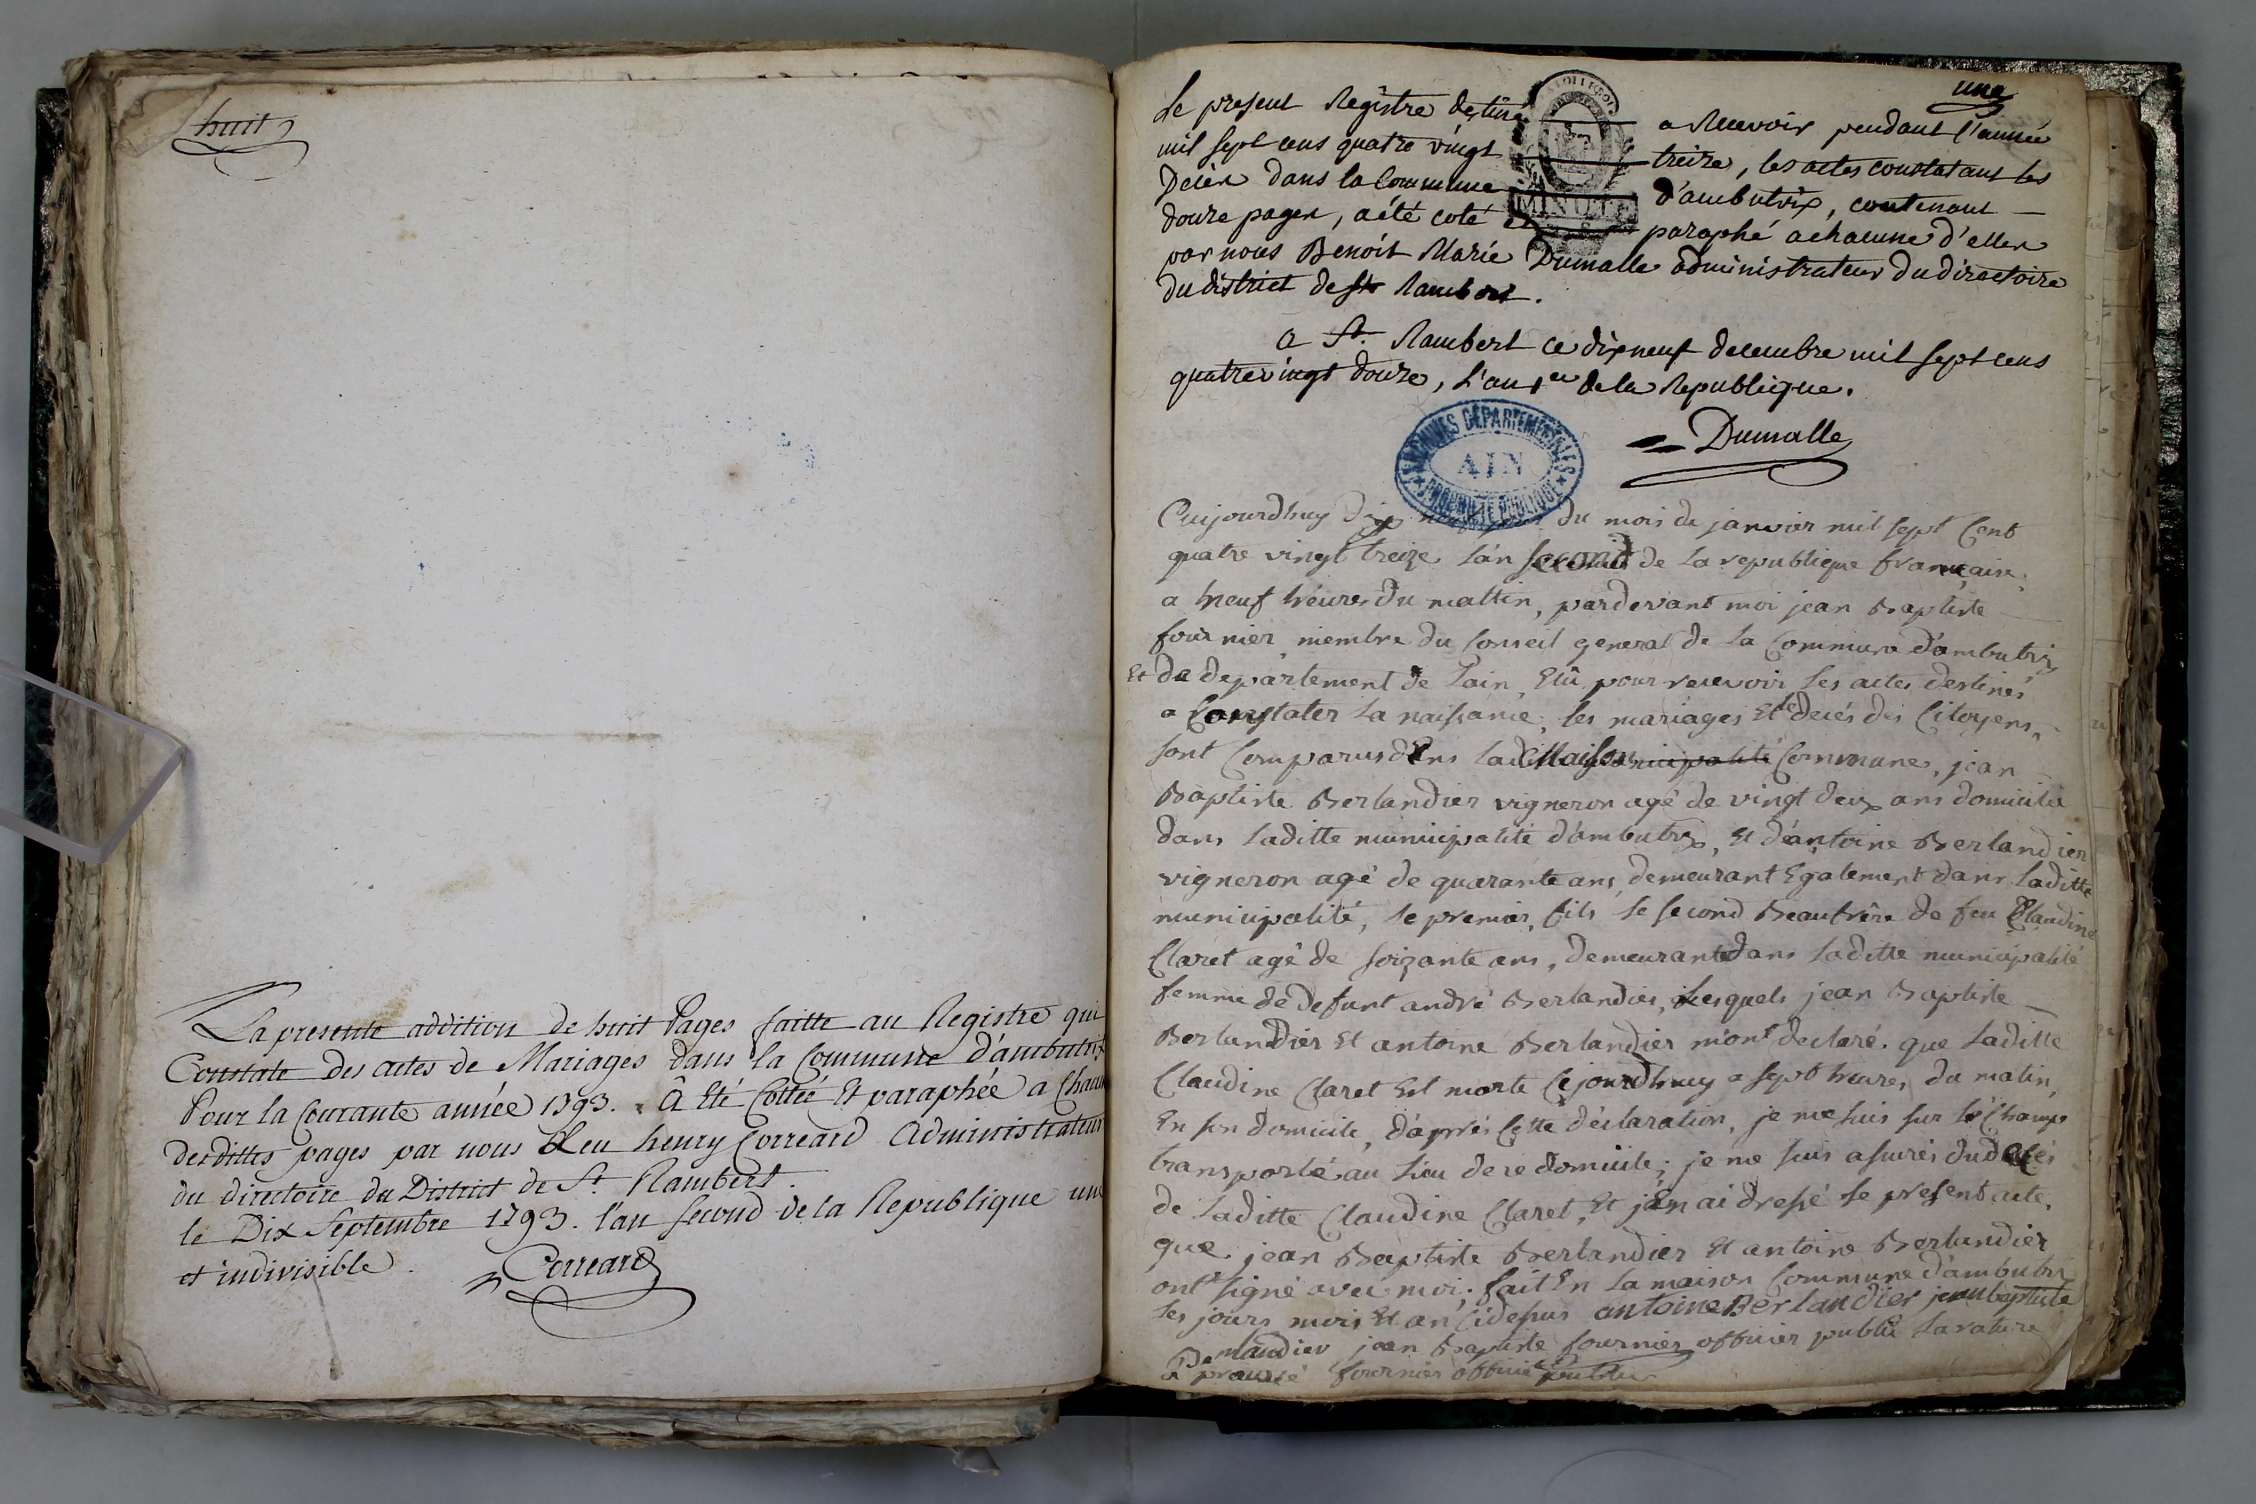 huit
La presente addition de huit Pages faitte au Registre qui
Constate des actes de Mariages dans la Commune d'ambutrix
Pour la Courante année 1793. A Eté Cottée Et paraphée a Chacune
desdittes pages par nous Leu henry Correard Administrateur
du directoire du District de St. Rambert.
le Dix Septembre 1793. l'an second de la Republique une
et indivisible.
Correard
une
Le present Registre destiné a Recevoir pendant l'année
mil sept cens quatre vingt treize, les actes constatant les
Décèx dans la Commune d'ambutrix, contenant
douze pages, a été coté et paraphé a chacune d'elles
par nous Benoit Marie Dumalle administrateur du directoire
du district de St Rambert.
a St. Rambert ce dix neuf decembre mil sept cens
quatre vingt douze, l'an 1er de la Republique.
Dumalle
MINUTE
ARCHIVES DÉPARTEMENTALES
AIN
PROPRIÉTÉ PUBLIQUE
Aujourdhuy dix du mois de janvier mil sept Cent
quatre vingt treize Lan second de la republique française,
a Neuf heures du mattin, pardevant moi jean Baptiste
fournier, membre du Conseil general de la Commune d'ambutrix
Et du departement de Lain, Elû pour recevoir les actes destinés
a Constater la naissance, les mariages Et le decés des Citoyens,
sont Comparus dans la ditte Maison municipalité Commune, jean
Baptiste Berlandier vigneron agé de vingt deux ans domicilié
dans laditte municipalité d'ambutrix, Et d'antoine Berlandier
vigneron agé de quarante ans, demeurant Egalement dans laditte
municipalité, le premier, fils le second Beaufrére de feu Claudine
Claret agé de soizante ans, demeurante dans laditte municipalité
femme de defunt andré Berlandier, Lesquels jean Baptiste
Berlandier Et antoine Berlandier mont declaré. que Laditte
Claudine Claret Est morte Cejourdhuy a sept heures du matin,
En son domicile, d'aprés Cette déclaration, je me suis sur le Champ
transporté au Lieu de ce domicile, je me suis assurés du decés
de Laditte Claudine Claret, Et j'En ai dressé le present acte,
que jean Baptiste Berlandier Et antoine Berlandier
ont signé avec moi. fait En la maison Commune d'ambutrix
les jours mois Et an Cidessus antoine Berlandier jean baptiste
Berlandier jean Baptiste fournier officier public La rature
aprouvé fournier officier public